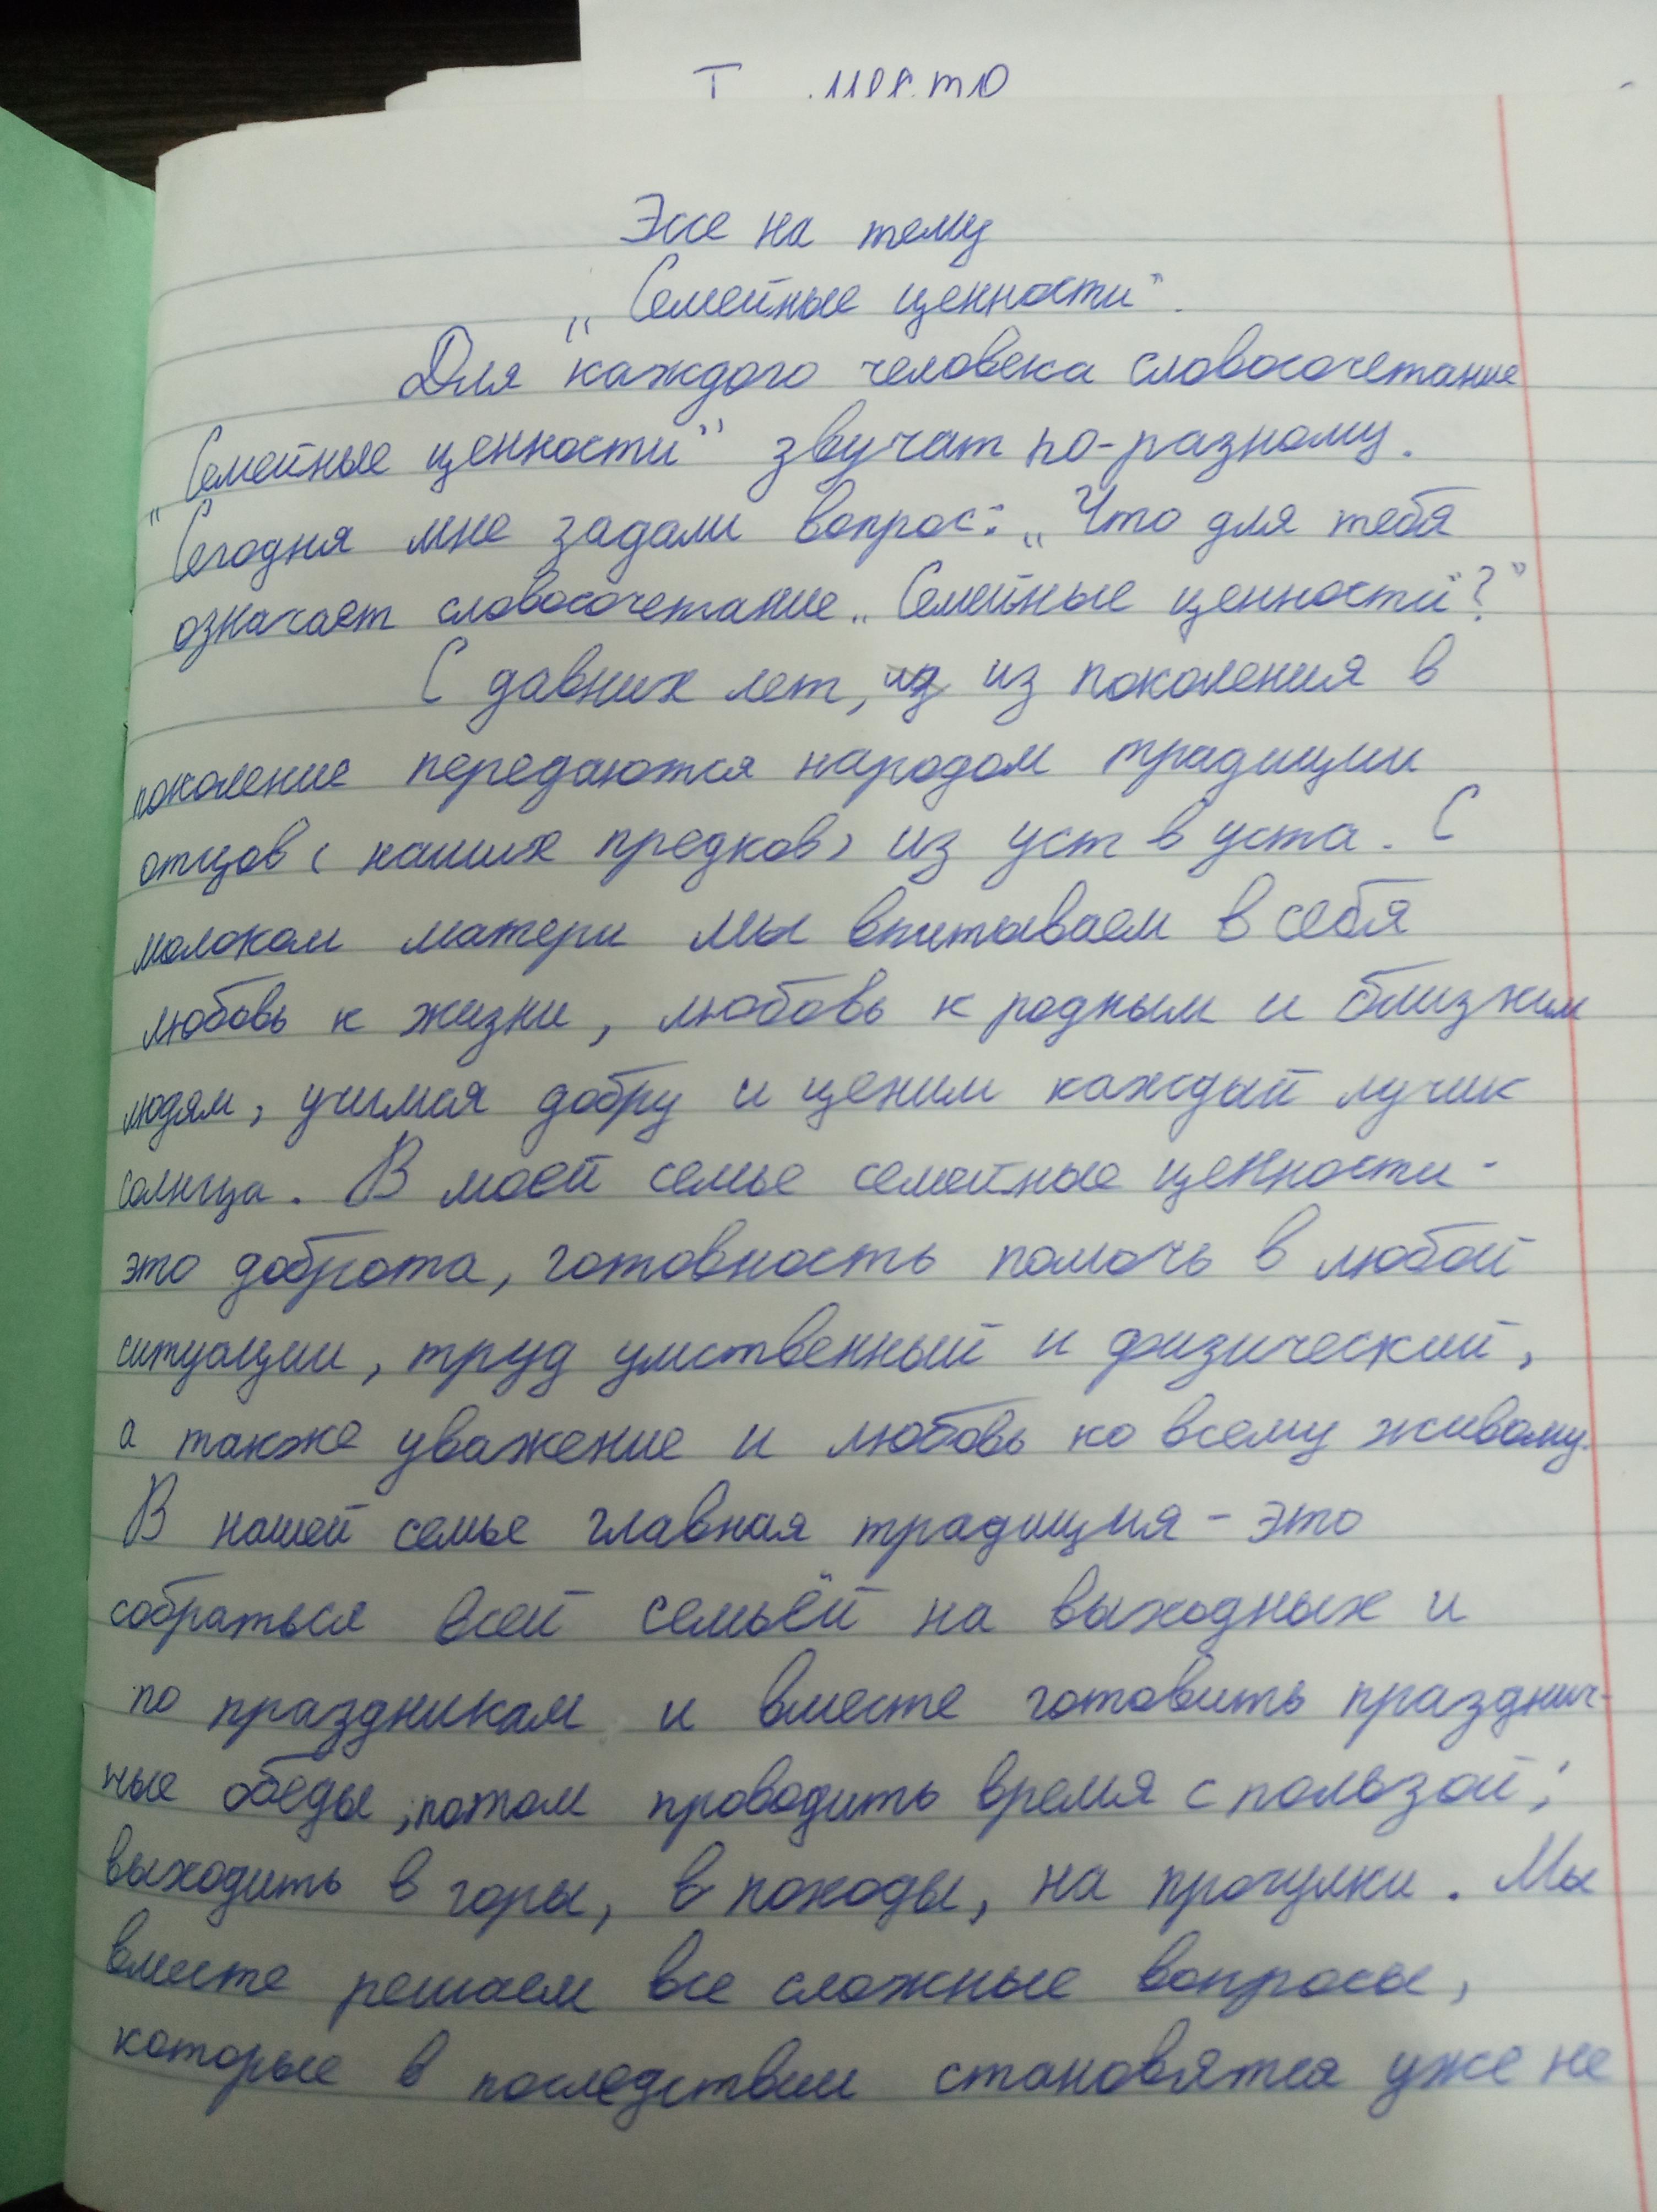 Эссе на тему
„Семейные ценности".
Для каждого человека словосочетание
"Семейные ценности" звучат по-разному.
Сегодня мне задали вопрос: „Что для тебя
означает словосочетание „Семейные ценности"?"
С давних лет, из из поколения в
поколение передаются народом традиции
отцов (наших предков) из уст в уста. С
молоком матери мы впитываем в себя
любовь к жизни, любовь к родным и близким
людям, учимся добру и ценим каждый лучик
солнца. В моей семье семейные ценности -
это доброта, готовность помочь в любой
ситуации, труд умственный и физический,
а также уважение и любовь ко всему живому.
В нашей семье главная традиция - это
собраться всей семьёй на выходных и
по праздникам и вместе готовить празднич-
ные обеды, потом проводить время с пользой;
выходить в горы, в походы, на прогулки. Мы
вместе решаем все сложные вопросы,
которые в последствии становятся уже не